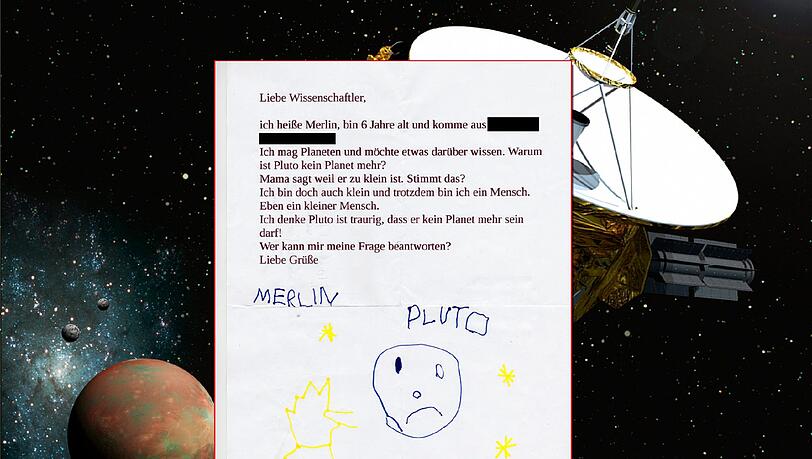 Liebe Wissenschaftler,
ich heiße Merlin, bin 6 Jahre alt und komme aus
Ich mag Planeten und möchte etwas darüber wissen. Warum
ist Pluto kein Planet mehr?
Mama sagt weil er zu klein ist. Stimmt das?
Ich bin doch auch klein und trotzdem bin ich ein Mensch.
Eben ein kleiner Mensch.
Ich denke Pluto ist traurig, dass er kein Planet mehr sein
darf!
Wer kann mir meine Frage beantworten?
Liebe Grüße
MERLIN
PLUTO